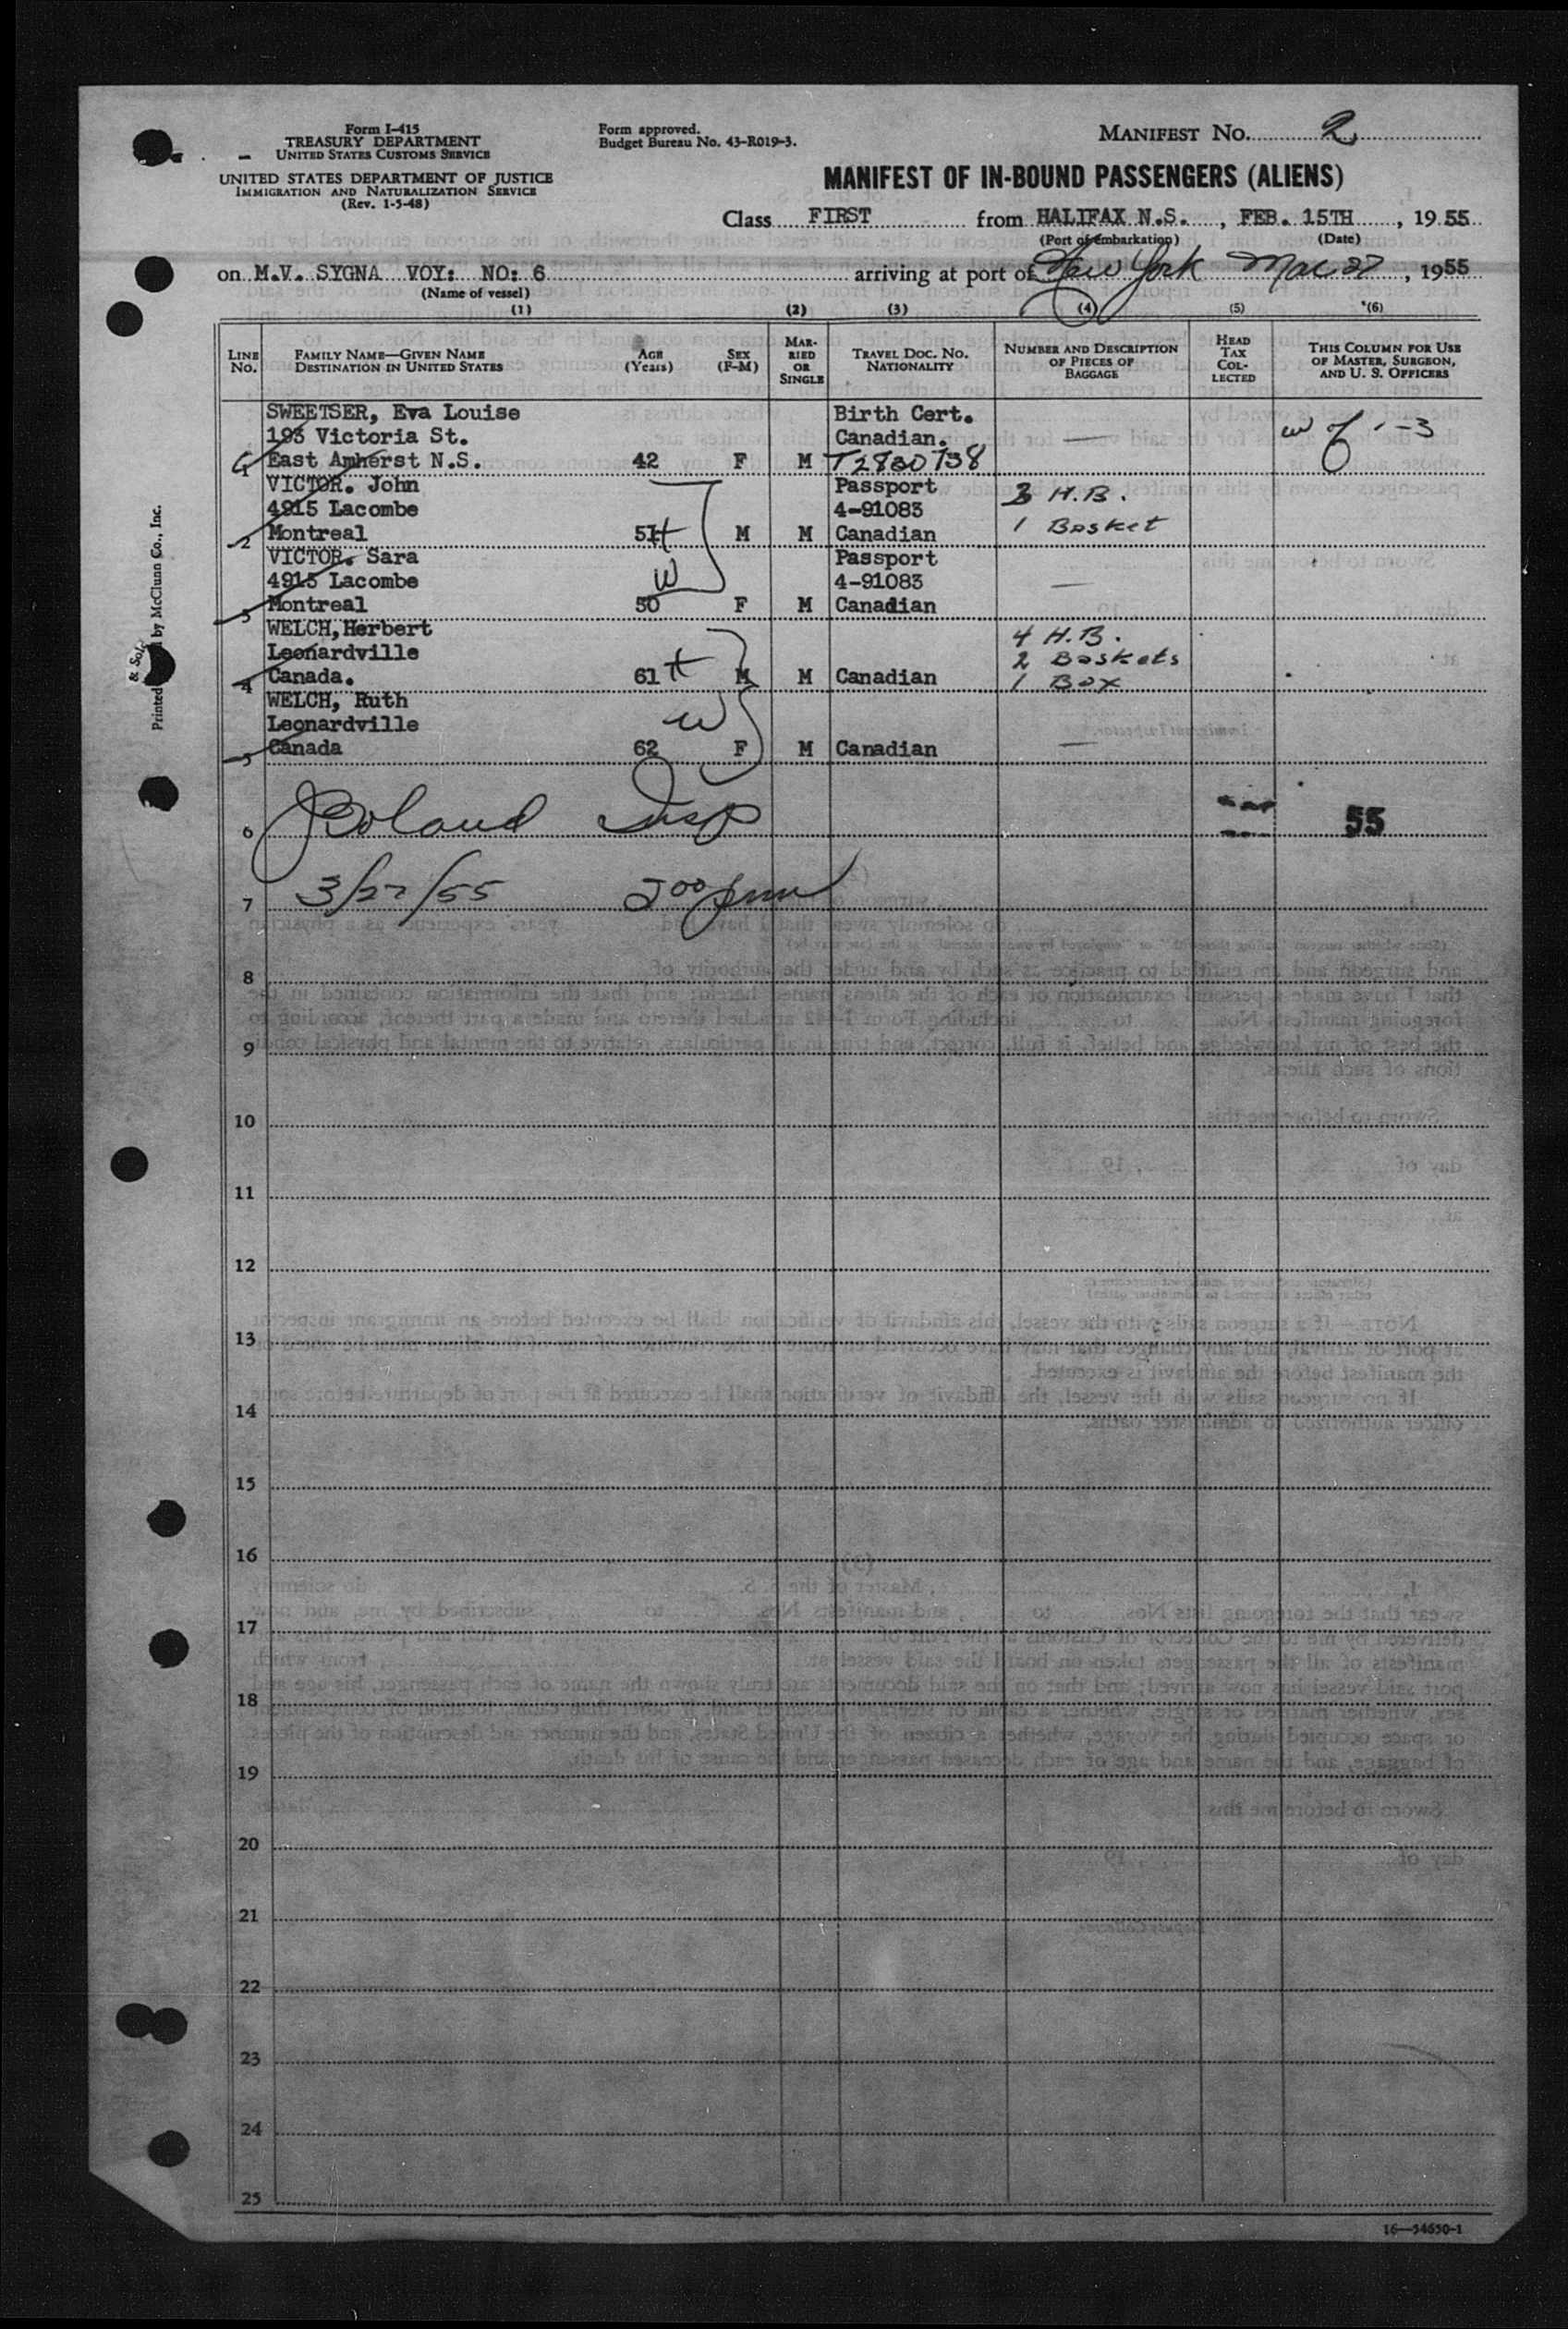 Form I-415
TREASURY DEPARTMENT
UNITED STATES CUSTOMS SERVICE
UNITED STATES DEPARTMENT OF JUSTICE
IMMIGRATION AND NATURALIZATION SERVICE
(Rev. 1-5-48)
Form approved.
Budget Bureau No. 43-R019-3.
MANIFEST NO. 2
MANIFEST OF IN-BOUND PASSENGERS (ALIENS)
Class FIRST from HALIFAX N.S., FEB. 15TH, 1955
(Port of embarkation) (Date)
on M.V. SYGNA VOY: NO: 6 arriving at port of New York Mar 27, 1955
(Name of vessel)
(1) (2) (3) (4) (5) (6)
LINE NO.
FAMILY NAME—GIVEN NAME
DESTINATION IN UNITED STATES
AGE (Years)
SEX (F-M)
MARRIED OR SINGLE
TRAVEL DOC. NO.
NATIONALITY
NUMBER AND DESCRIPTION OF PIECES OF BAGGAGE
HEAD TAX COLLECTED
THIS COLUMN FOR USE OF MASTER, SURGEON, AND U. S. OFFICERS
SWEETSER, Eva Louise Birth Cert.
193 Victoria St. Canadian. — w of 1-3
1 East Amherst N.S. 42 F M T2830738
VICTOR. John Passport 3 H.B.
4915 Lacombe 4-91083 1 Basket
2 Montreal 51 H M M Canadian
VICTOR. Sara Passport
4915 Lacombe W 4-91083 —
3 Montreal 50 F M Canadian
WELCH, Herbert 4 H.B.
Leonardville 2 Baskets
4 Canada. 61 H M M Canadian 1 Box
WELCH, Ruth
Leonardville W
5 Canada 62 F M Canadian —
6 Boland Insp 55
7 3/27/55 2 00 pm
8
9
10
11
12
13
14
15
16
17
18
19
20
21
22
23
24
25
16—54650-1
Printed by McClunn Co., Inc.